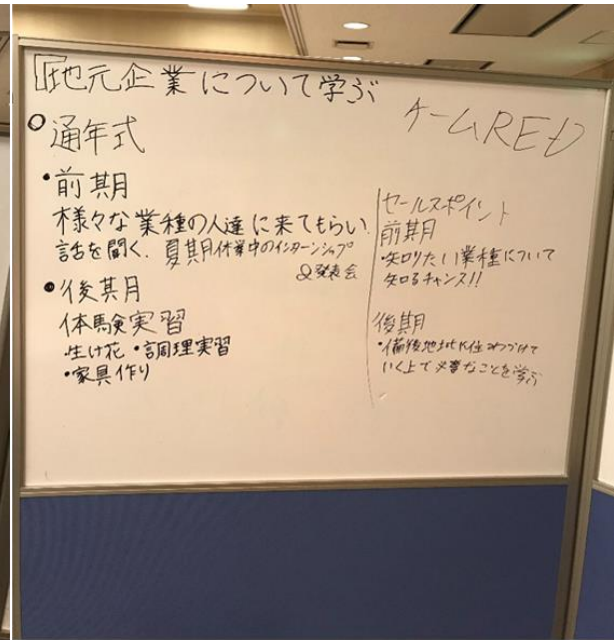 地元企業について学ぶ
チームRED
○通年式
・前期
様々な業種の人達に来てもらい
話を聞く、夏期休業中のインターンシップ
&発表会
・後期
体験実習
・生け花 ・調理実習
・家具作り
セールスポイント
前期
・知りたい業種について
知るチャンス!!
後期
・備後地域に住みつづけて
いく上で必要なことを学ぶ